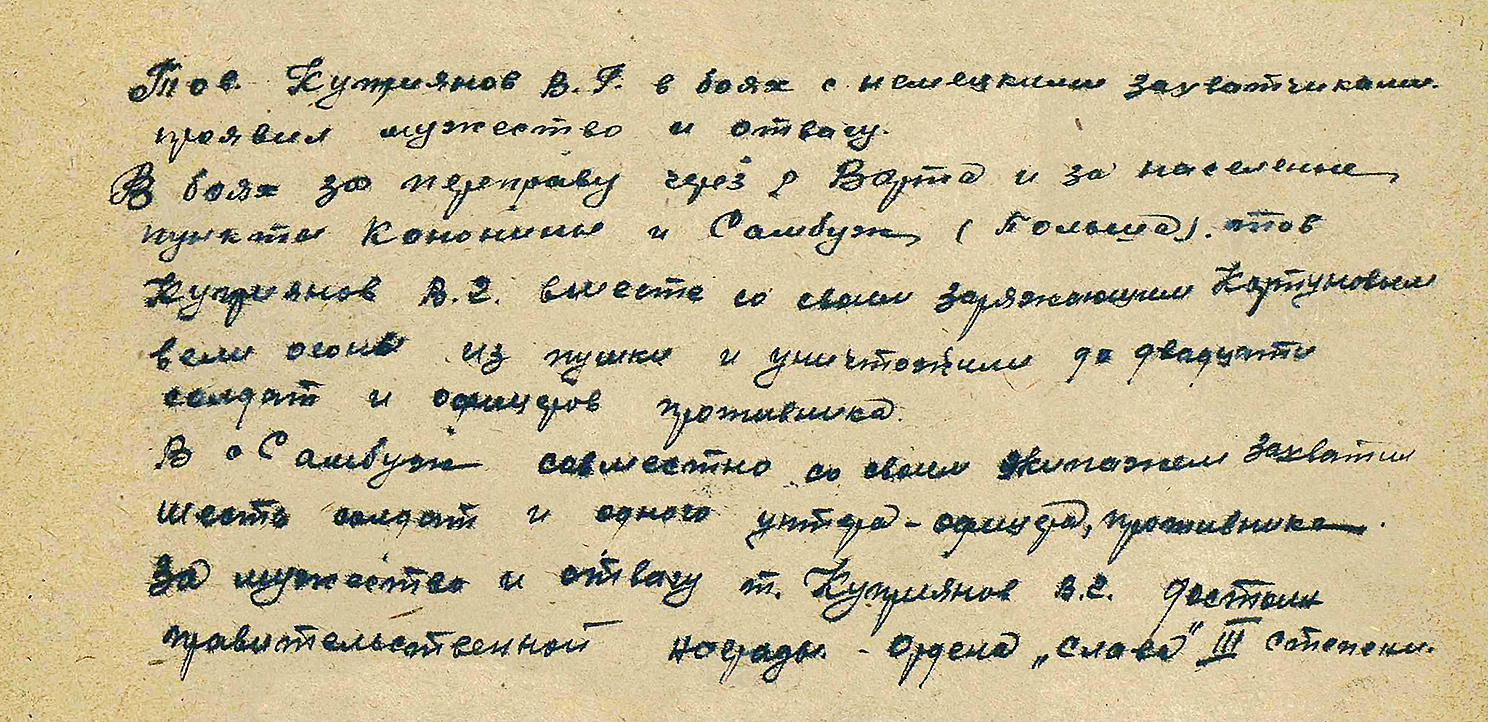 Тов. Куприянов В. Г. в боях с немецкими захватчиками.
проявил мужество и отвагу.
В боях за переправу через р Варта и за населенные
пункты Кононины и Самбуж (Польша). тов
Куприянов В.Г. вместе со своим заряжающим Картуновым
вели огонь из пушки и уничтожили до двадцати
солдат и офицеров противника.
В с Самбуж совместно со своим экипажем захватил
шесть солдат и одного унтера-офицера, противника.
За мужество и отвагу т. Куприянов В.Г. достоин
правительственной награды. - Ордена „Слава" III степени.